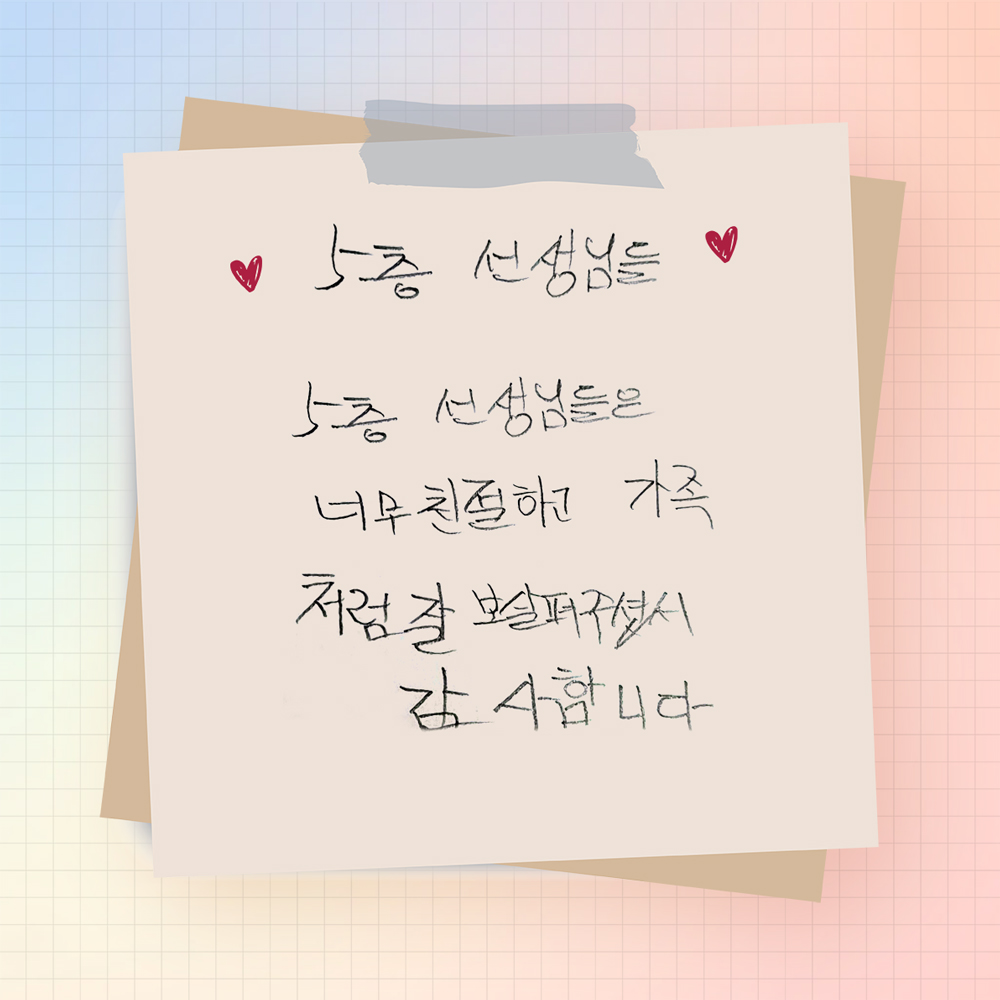 5층 선생님들
5층 선생님들은
너무 친절하고 가족
처럼 잘 보살펴주셨서
감사합니다